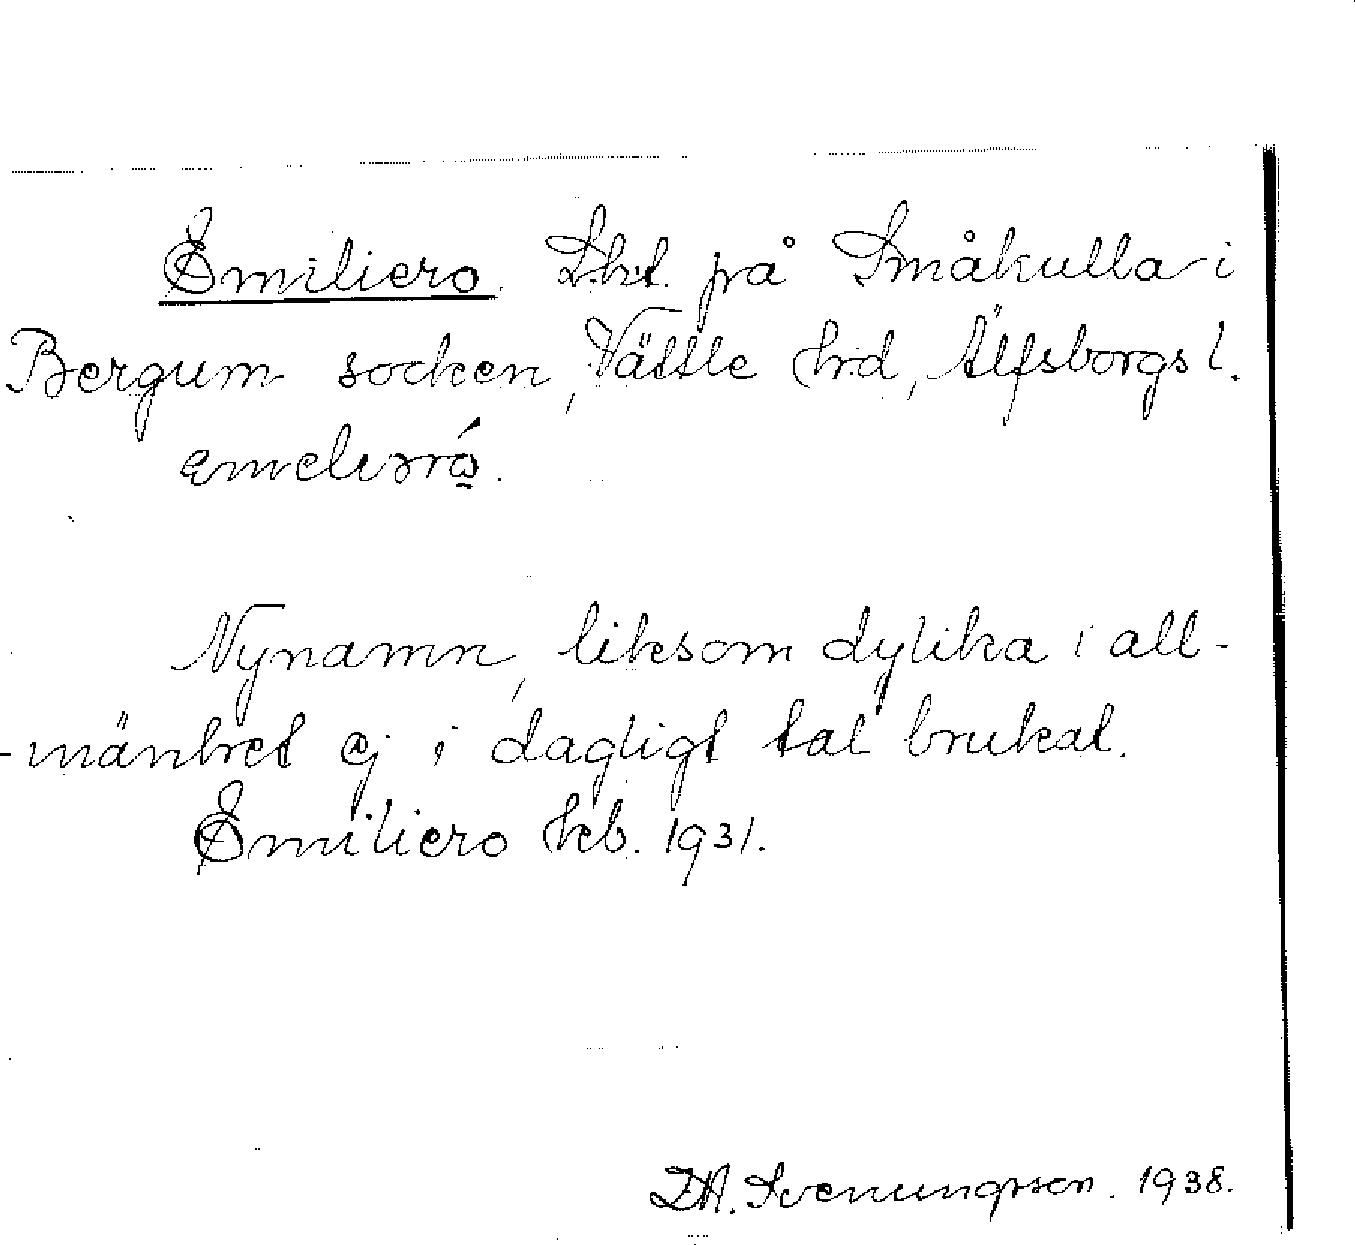 Emiliero. Lht. på Småkulla i
Bergum socken, Vättle hrd, Älfsborgs l.
emeliəró.
Nynamn, liksom dylika i all-
-mänhet ej i dagligt tal brukat.
Emiliero hcb. 1931.
D.A. Svenungsson. 1938.